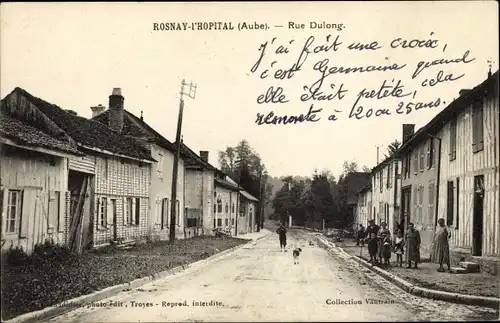 ROSNAY-l'HOPITAL (Aube). — Rue Dulong.
J'ai fait une croix,
c'est Germaine quand
elle était petite, cela
remonte à 20 ou 25 ans.
photo. édit, Troyes - Reprod. interdite.
Collection Vautrain